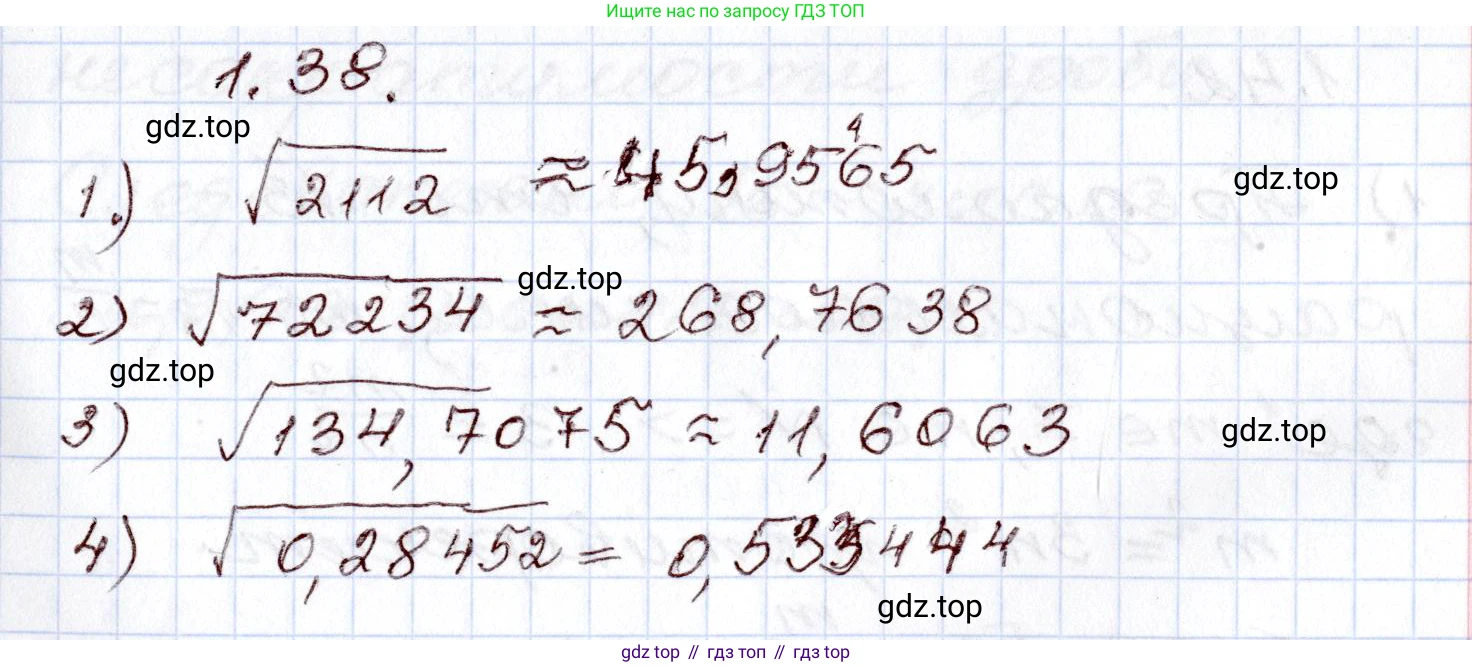 Ищите нас по запросу ГДЗ ТОП
1.38.
gdz.top
1.) √2112 ≈ 45,9565
4
gdz.top
gdz.top
2) √72234 ≈ 268,7638
gdz.top
3) √134,7075 ≈ 11,6063
gdz.top
4) √0,28452 = 0,533444
gdz.top
gdz top // гдз топ // гдз top